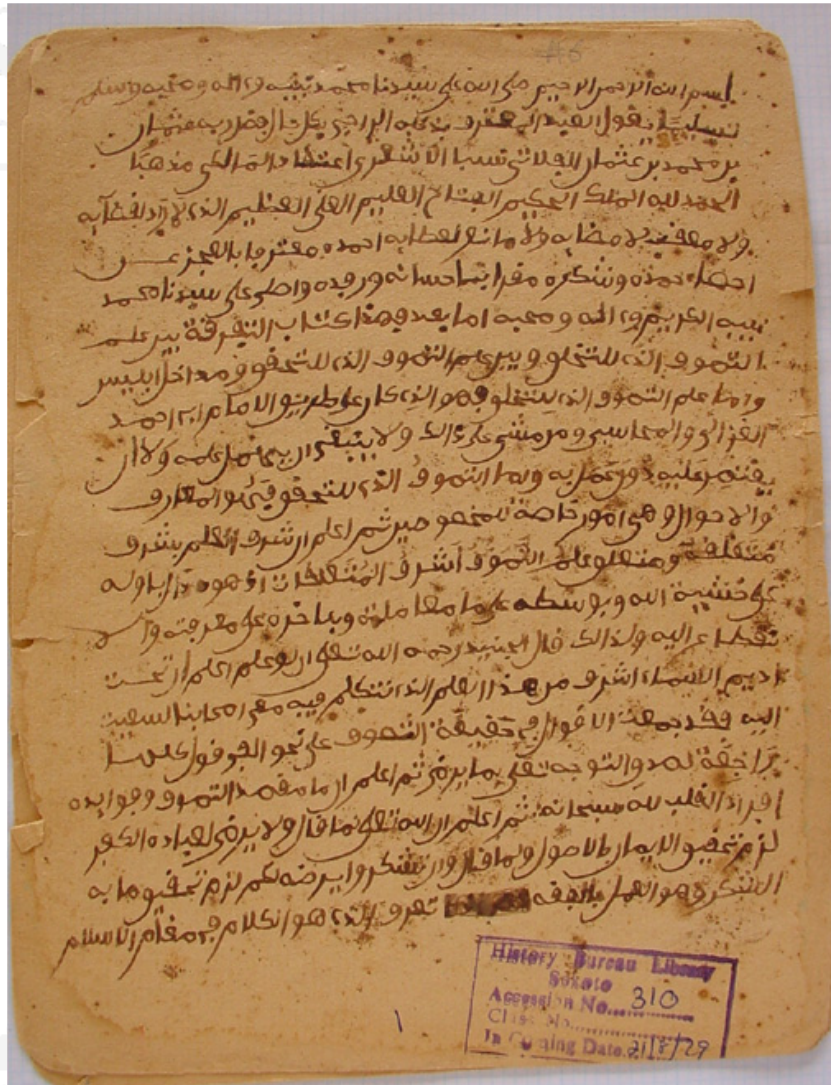 بسم الله الرحمن الرحيم صلى الله على سيدنا محمد نبيه وءاله وصحبه وسلم
تسليما يقول العبد المعترف بذنبه الراجي بكل حال فضل ربه عثمان
بن محمد بن عثمان الفلاتي نسبا الأشعري اعتقادا المالكي مذهبا
الحمد لله الملك الحكيم الفتاح العليم العلي العظيم الذي لا راد لقضآيه
ولا معقب لامضايه ولا مانع لعطايه احمده معترفا بالعجز عن
احصاء حمده وشكره مقرا باحسانه ورفده واصلى على سيدنا محمد
نبيه الكريم وءاله وصحبه اما بعد فهذا كتاب التفرقة بين علم
التصوف الذي للتخلق وبين علم التصوف الذي للتحقق ومداخل ابليس
واما علم التصوف الذي للتخلق فهو الذي كان على طريق الامام ابى احمد
الغزالى والمحاسبى ومن مشى على ذالك ولا ينبغى ان يجاهل علمه ولا ان
يقتصر عليه دون عمل به واما التصوف الذي للتحقق فى المعارف
والاحوال وهى امور خاصة لمخصوصين ثم اعلم ان شرف العلم بشرف
متعلقه ومتعلق علم التصوف أشرف المتعلقات اذ هو دال باوله
على خشية الله وبوسطه على معاملته وباخره على معرفته والا
نقطاع اليه ولذالك قال الجنيد رحمه الله تعلى لو علم اعلم ان تحت
اديم السماء اشرف من هذا العلم الذي نتكلم فيه مع اصحابنا لسعيت
اليه وقد بلغت الاقوال فى حقيقة التصوف على نحو الفي قول كلها
راجعة لصدق التوجه تعلى بما يرضى ثم اعلم ان ما مقصد التصوف وفوايده
افراد القلب لله سبحانه ثم اعلم ان الله تعلى لما قال ولا يرضى لعباده الكفر
لزم تحقيق الايمان بالاصول ولما قال وان تشكروا يرضه لكم لزم تحقيق ما به
الشكر وهو العمل بالفقه تعرف الذي هو الكلام فى مقام الاسلام
History Bureau Library
Sokoto
Accession No. 310
Class No.
In Coming Date 21/8/79